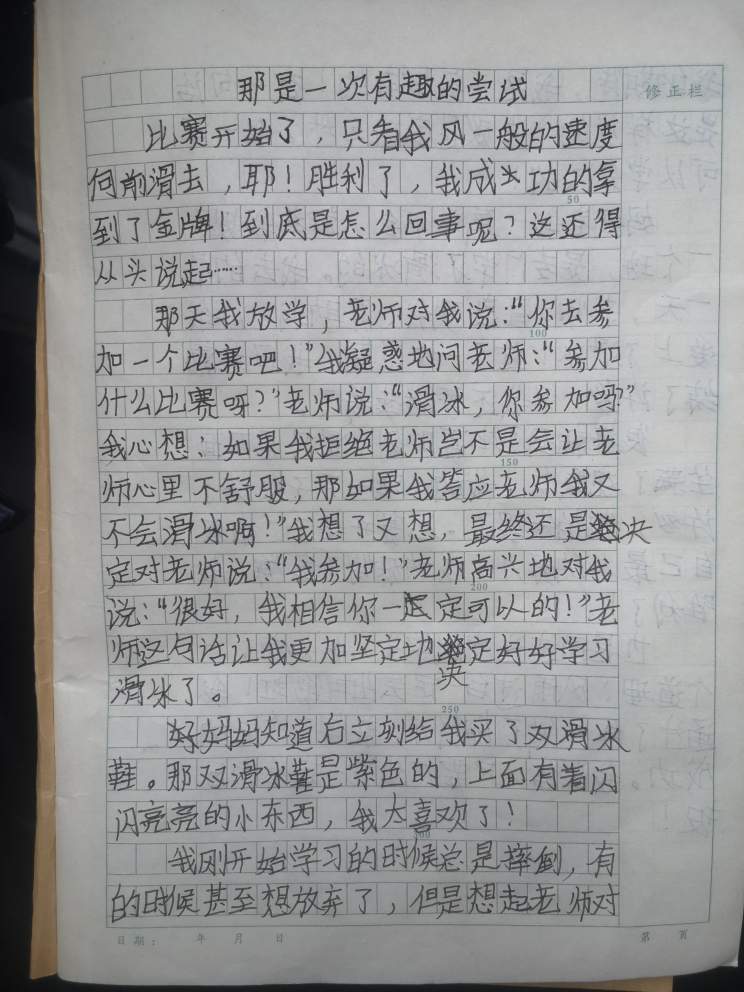 那是一次有趣的尝试
修正栏
比赛开始了，只看我风一般的速度
向前滑去，耶！胜利了，我成功的拿
50
到了金牌！到底是怎么回事呢？这还得
从头说起……
那天我放学，老师对我说：“你去参
100
加一个比赛吧！”我疑惑地问老师：“参加
什么比赛呀？”老师说：“滑冰，你参加吗？”
我心想：如果我拒绝老师岂不是会让老
150
师心里不舒服，那如果我答应老师我又
不会滑冰啊！”我想了又想，最终还是决
定对老师说：“我参加！”老师高兴地对我
200
说：“很好，我相信你一定可以的！”老
师这句话让我更加坚定地决定好好学习
滑冰了。
250
好妈妈知道后立刻给我买了双滑冰
鞋。那双滑冰鞋是紫色的，上面有着闪
闪亮亮的小东西，我太喜欢了！
300
我刚开始学习的时候总是摔倒，有
的时候甚至想放弃了，但是想起老师对
日期： 年 月 日
第 页